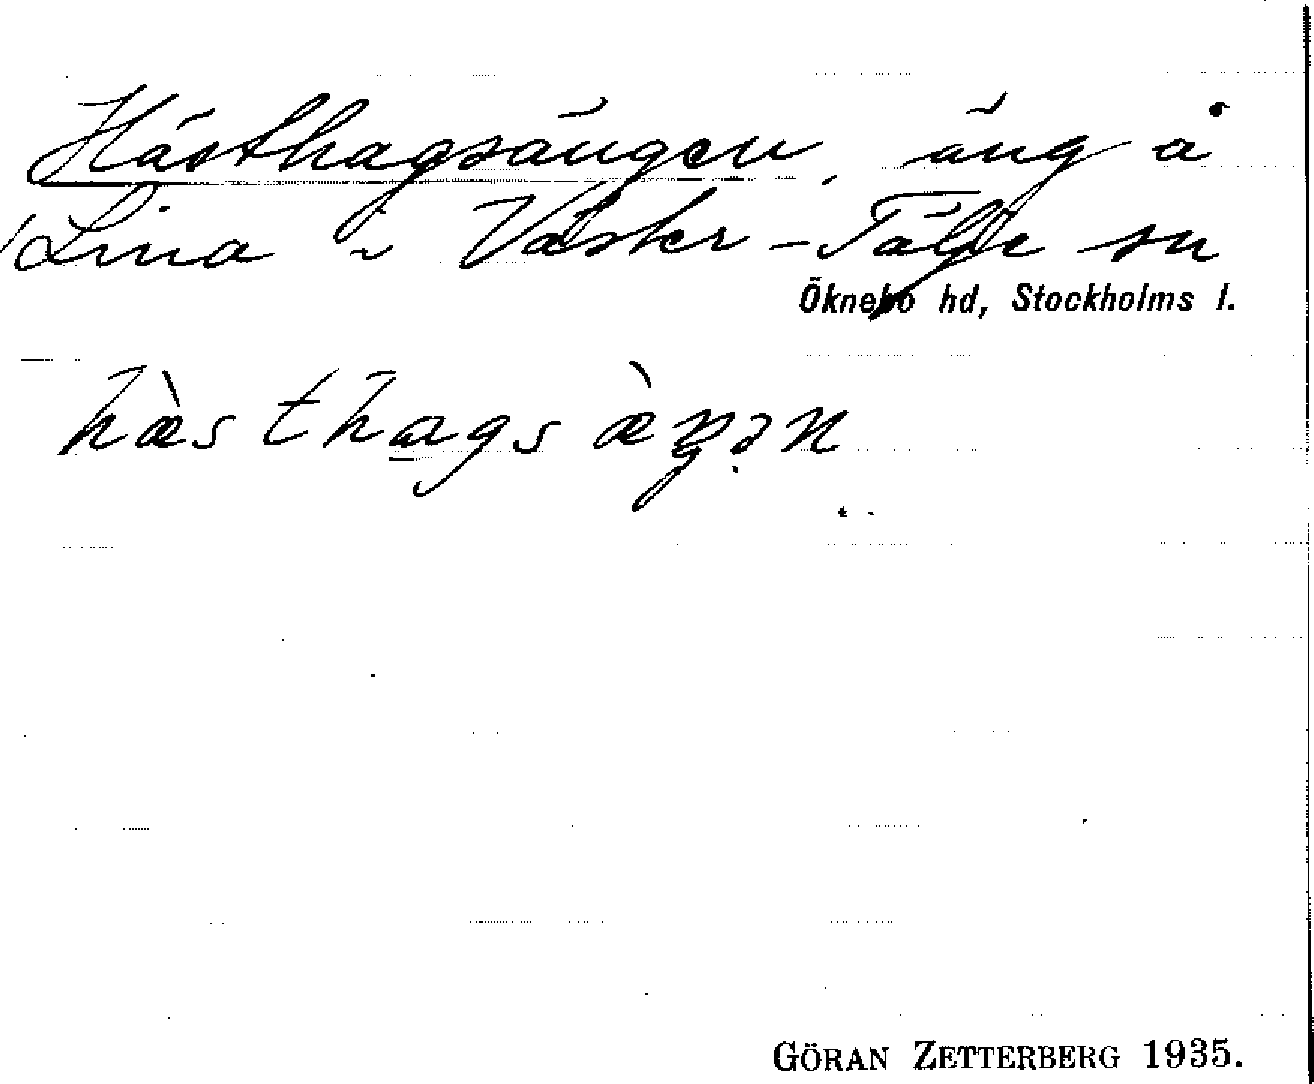 Hästhagsängen, äng å
Lina i Väster-Tälje sn
Öknebo hd, Stockholms l.
hæ̀sthagsæ̀ŋən
GÖRAN ZETTERBERG 1935.